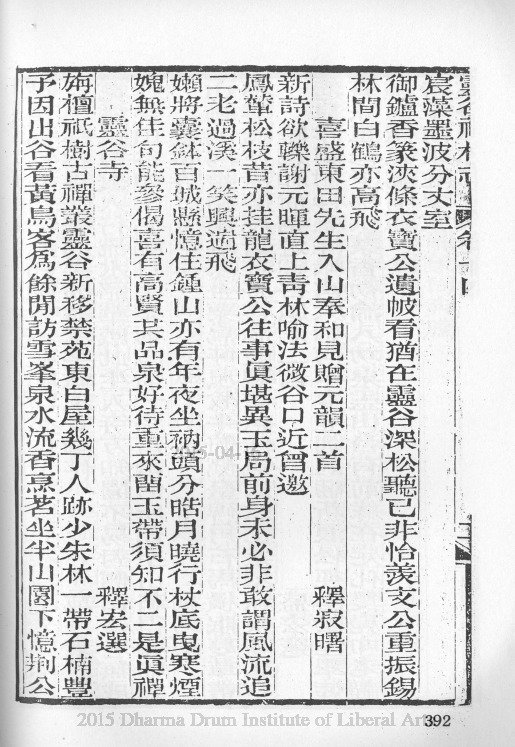 靈谷禪林志 卷十四
宸藻墨波分丈室
御鑪香篆浹條衣寶公遺帔看猶在靈谷深松聽已非恰羨支公重振錫
林間白鶴亦高飛
喜盛東田先生入山奉和見贈元韻二首 釋寂曙
新詩欲躒謝元暉直上靑林喻法微谷口近曾邀
鳳輦松枝昔亦挂龍衣寶公往事眞堪異玉局前身未必非敢謂風流追
二老過溪一笑興遄飛
嬾將囊鉢百城懸憶住鍾山亦有年夜坐衲頭分皓月曉行杖底曳寒煙
媿無佳句能參偈喜有高賢共品泉好待重來畱玉帶須知不二是眞禪
靈谷寺 釋宏選
旃檀祇樹古禪叢靈谷新移禁苑東白屋幾丁人跡少朱林一帶石楠豐
予因出谷看黃鳥客爲餘閒訪雪峯泉水流香烹茗坐半山園下憶荆公
2015 Dharma Drum Institute of Liberal Art
392